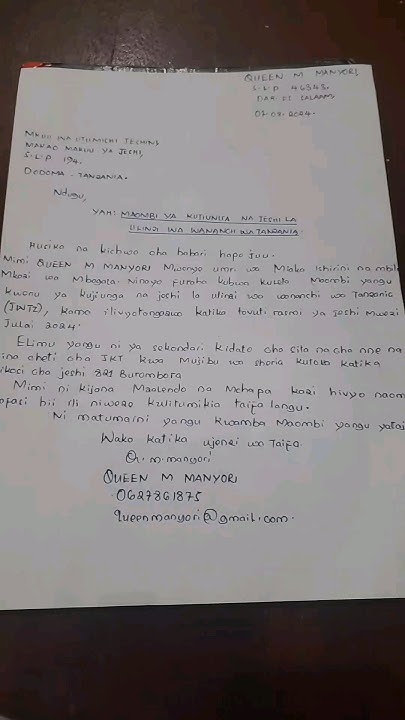 QUEEN M MANYORI
S.L.P 46343.
DAR ES SALAAM
07.08.2024.
MKUU WA UTUMICHI JESHINI
MAKAO MAKUU YA JESHI,
S.L.P 194,
DODOMA - TANZANIA.
Ndugu,
YAH: MAOMBI YA KUJIUNGA NA JESHI LA
ULINZI WA WANANCHI WA TANZANIA
Husika na kichwa cha habari hapo juu.
Mimi QUEEN M MANYORI Mwenye umri wa Miaka ishirini na mbili
Mkazi wa Mbagala. Ninayo furaha kubwa kuleta Maombi yangu
kwenu ya kujiunga na jeshi la ulinzi wa wananchi wa Tanzania
(JWTZ), kama ilivyotangazwa katika tovuti rasmi ya jeshi Mwezi
Julai 2024.
Elimu yangu ni ya sekondari kidato cha sita na cha nne na
ina cheti cha JKT kwa Mujibu wa sheria kutoka katika
ikosi cha jeshi 821 Burombora
Mimi ni kijana Mzalendo na Mchapa kazi hivyo naom
ofasi hii ili niweze kulitumikia taifa langu.
Ni matumaini yangu kwamba Maombi yangu yatai
Wako katika ujenzi wa Taifa.
Q.m.manyori
QUEEN M MANYORI
.0627861875
queenmanyori@gmail.com.